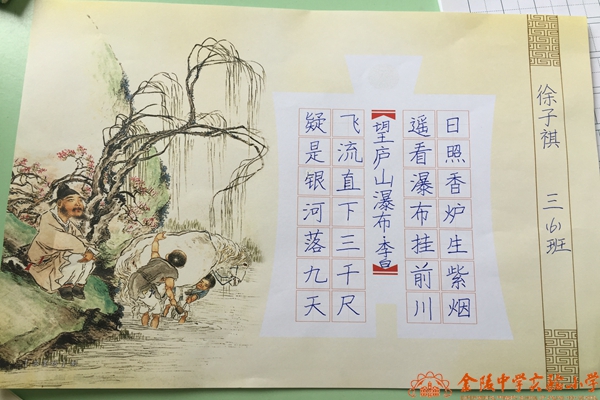 徐子祺 三(6)班
日照香炉生紫烟
遥看瀑布挂前川
【望庐山瀑布·李白】
飞流直下三千尺
疑是银河落九天
金陵中学实验小学